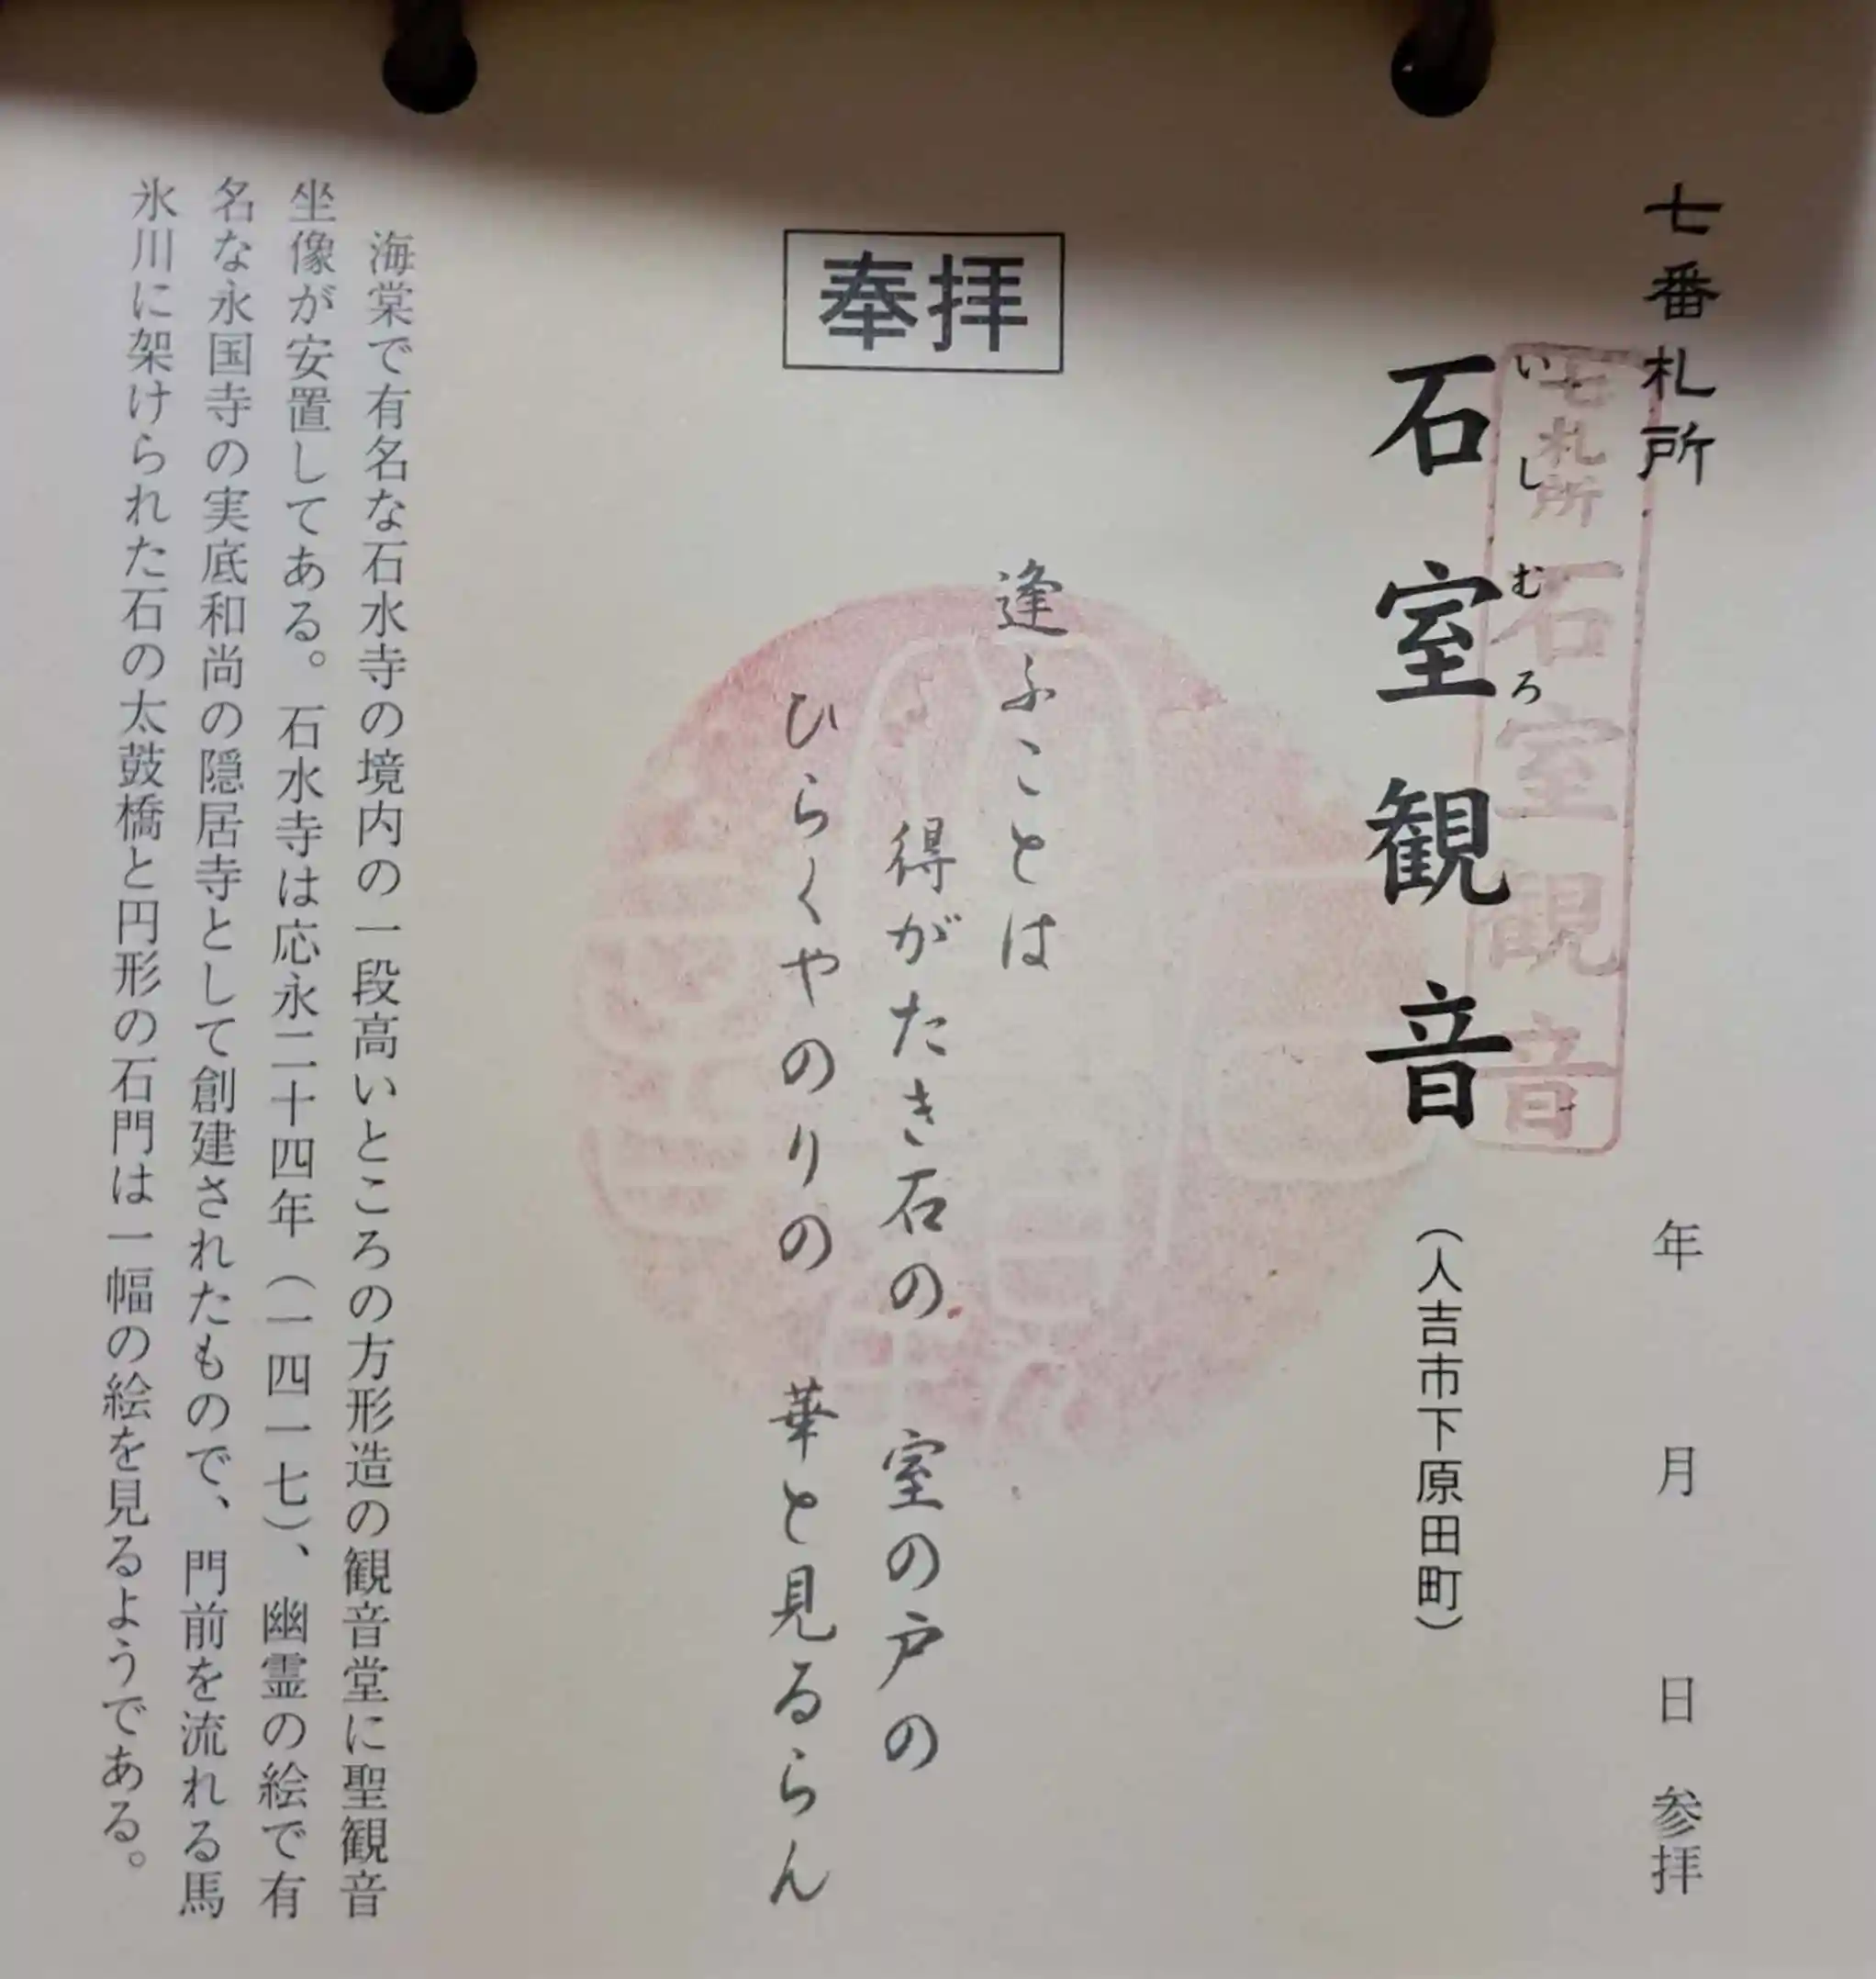 七番札所
年　月　日　参拝
七札所　石室観音
いしむろ
石室観音（人吉市下原田町）
奉拝
逢ふことは
得がたき石の　室の戸の
ひらくやのりの　華と見るらん
海棠で有名な石水寺の境内の一段高いところの方形造の観音堂に聖観音
坐像が安置してある。石水寺は応永二十四年（一四一七）、幽霊の絵で有
名な永国寺の実底和尚の隠居寺として創建されたもので、門前を流れる馬
氷川に架けられた石の太鼓橋と円形の石門は一幅の絵を見るようである。